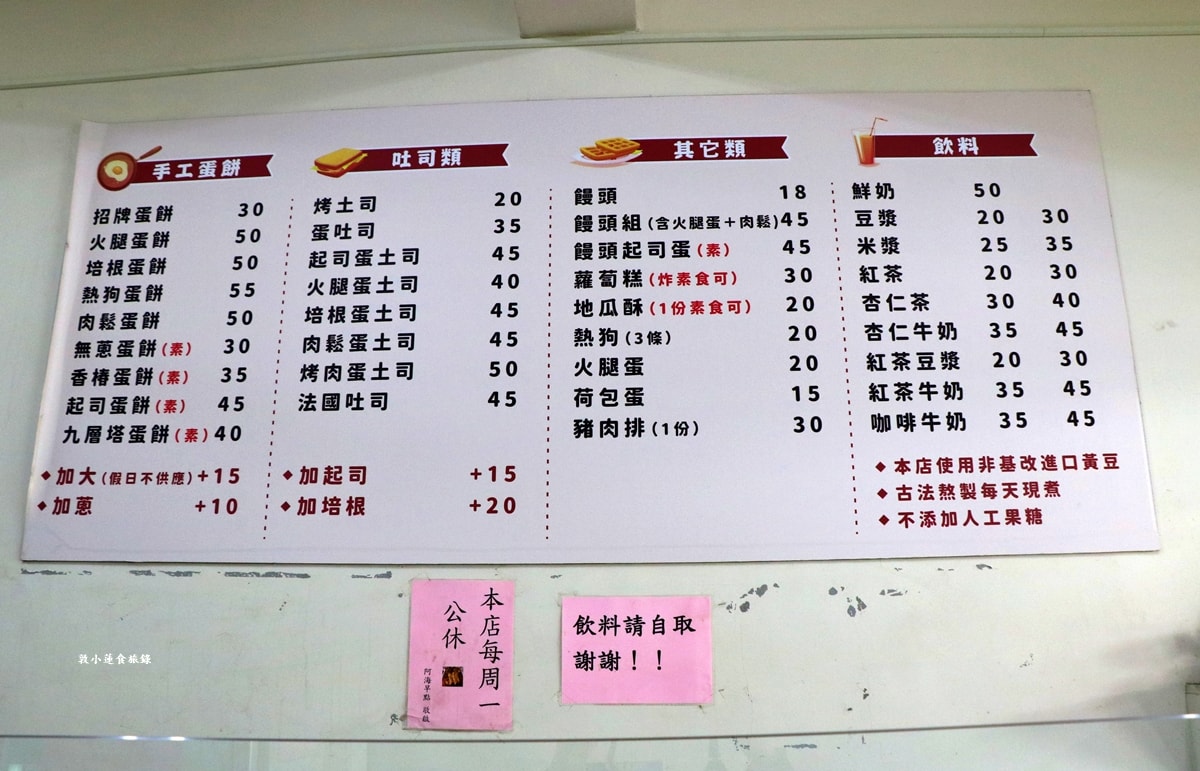 手工蛋餅
招牌蛋餅 30
火腿蛋餅 50
培根蛋餅 50
熱狗蛋餅 55
肉鬆蛋餅 50
無蔥蛋餅(素) 30
香椿蛋餅(素) 35
起司蛋餅(素) 45
九層塔蛋餅(素) 40
◆加大(假日不供應)+15
◆加蔥 +10
吐司類
烤土司 20
蛋吐司 35
起司蛋土司 45
火腿蛋土司 40
培根蛋土司 45
肉鬆蛋土司 45
烤肉蛋土司 50
法國吐司 45
◆加起司 +15
◆加培根 +20
其它類
饅頭 18
饅頭組(含火腿蛋+肉鬆)45
饅頭起司蛋(素) 45
蘿蔔糕(炸素食可) 30
地瓜酥(1份素食可) 20
熱狗(3條) 20
火腿蛋 20
荷包蛋 15
豬肉排(1份) 30
飲料
鮮奶 50
豆漿 20 30
米漿 25 35
紅茶 20 30
杏仁茶 30 40
杏仁牛奶 35 45
紅茶豆漿 20 30
紅茶牛奶 35 45
咖啡牛奶 35 45
◆本店使用非基改進口黃豆
◆古法熬製每天現煮
◆不添加人工果糖
本店每周一
公休
阿海早點 敬啟
飲料請自取
謝謝！！
敦小蓮食旅錄